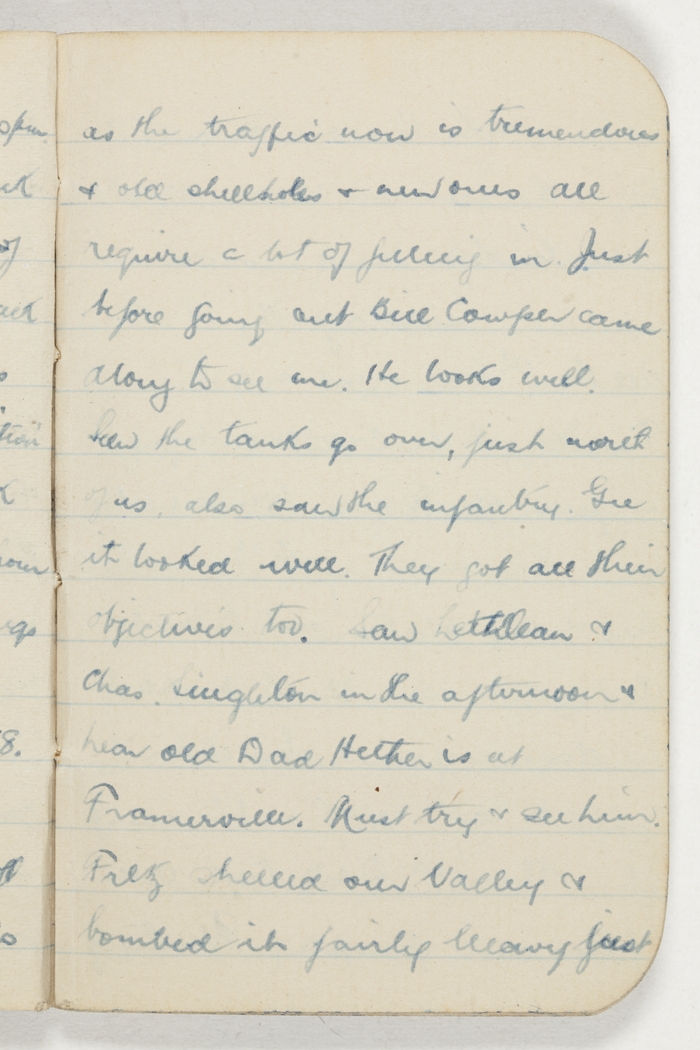 as the traffic now is tremendous
& old shellholes & new ones all
require a lot of filling in. Just
before going out Bill Cowper came
along to see me. He looks well.
Saw the tanks go over, just north
of us, also saw the infantry. Gee
it looked well. They got all their
objectives too. Saw Lethlean &
Chas. Singleton in the afternoon &
hear old Dad Hether is at
Framerville. Must try & see him.
Fritz shelled our Valley &
bombed it fairly heavy just